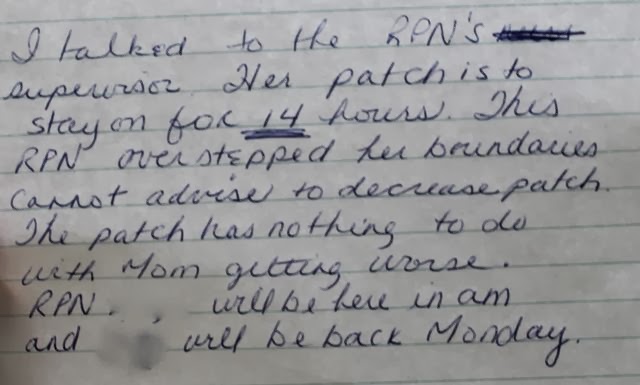 I talked to the RPN's
supervisor. Her patch is to
stay on for 14 hours. This
RPN overstepped her boundaries
cannot advise to decrease patch.
The patch has nothing to do
with Mom getting worse.
RPN. , will be here in am
and will be back Monday.